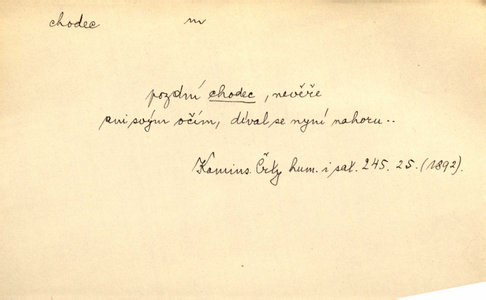 chodec m
pozdní chodec, nevěře
ani svým očím, díval se nyní nahoru..
Kamins. Črty hum. i sat. 245. 25. (1892).